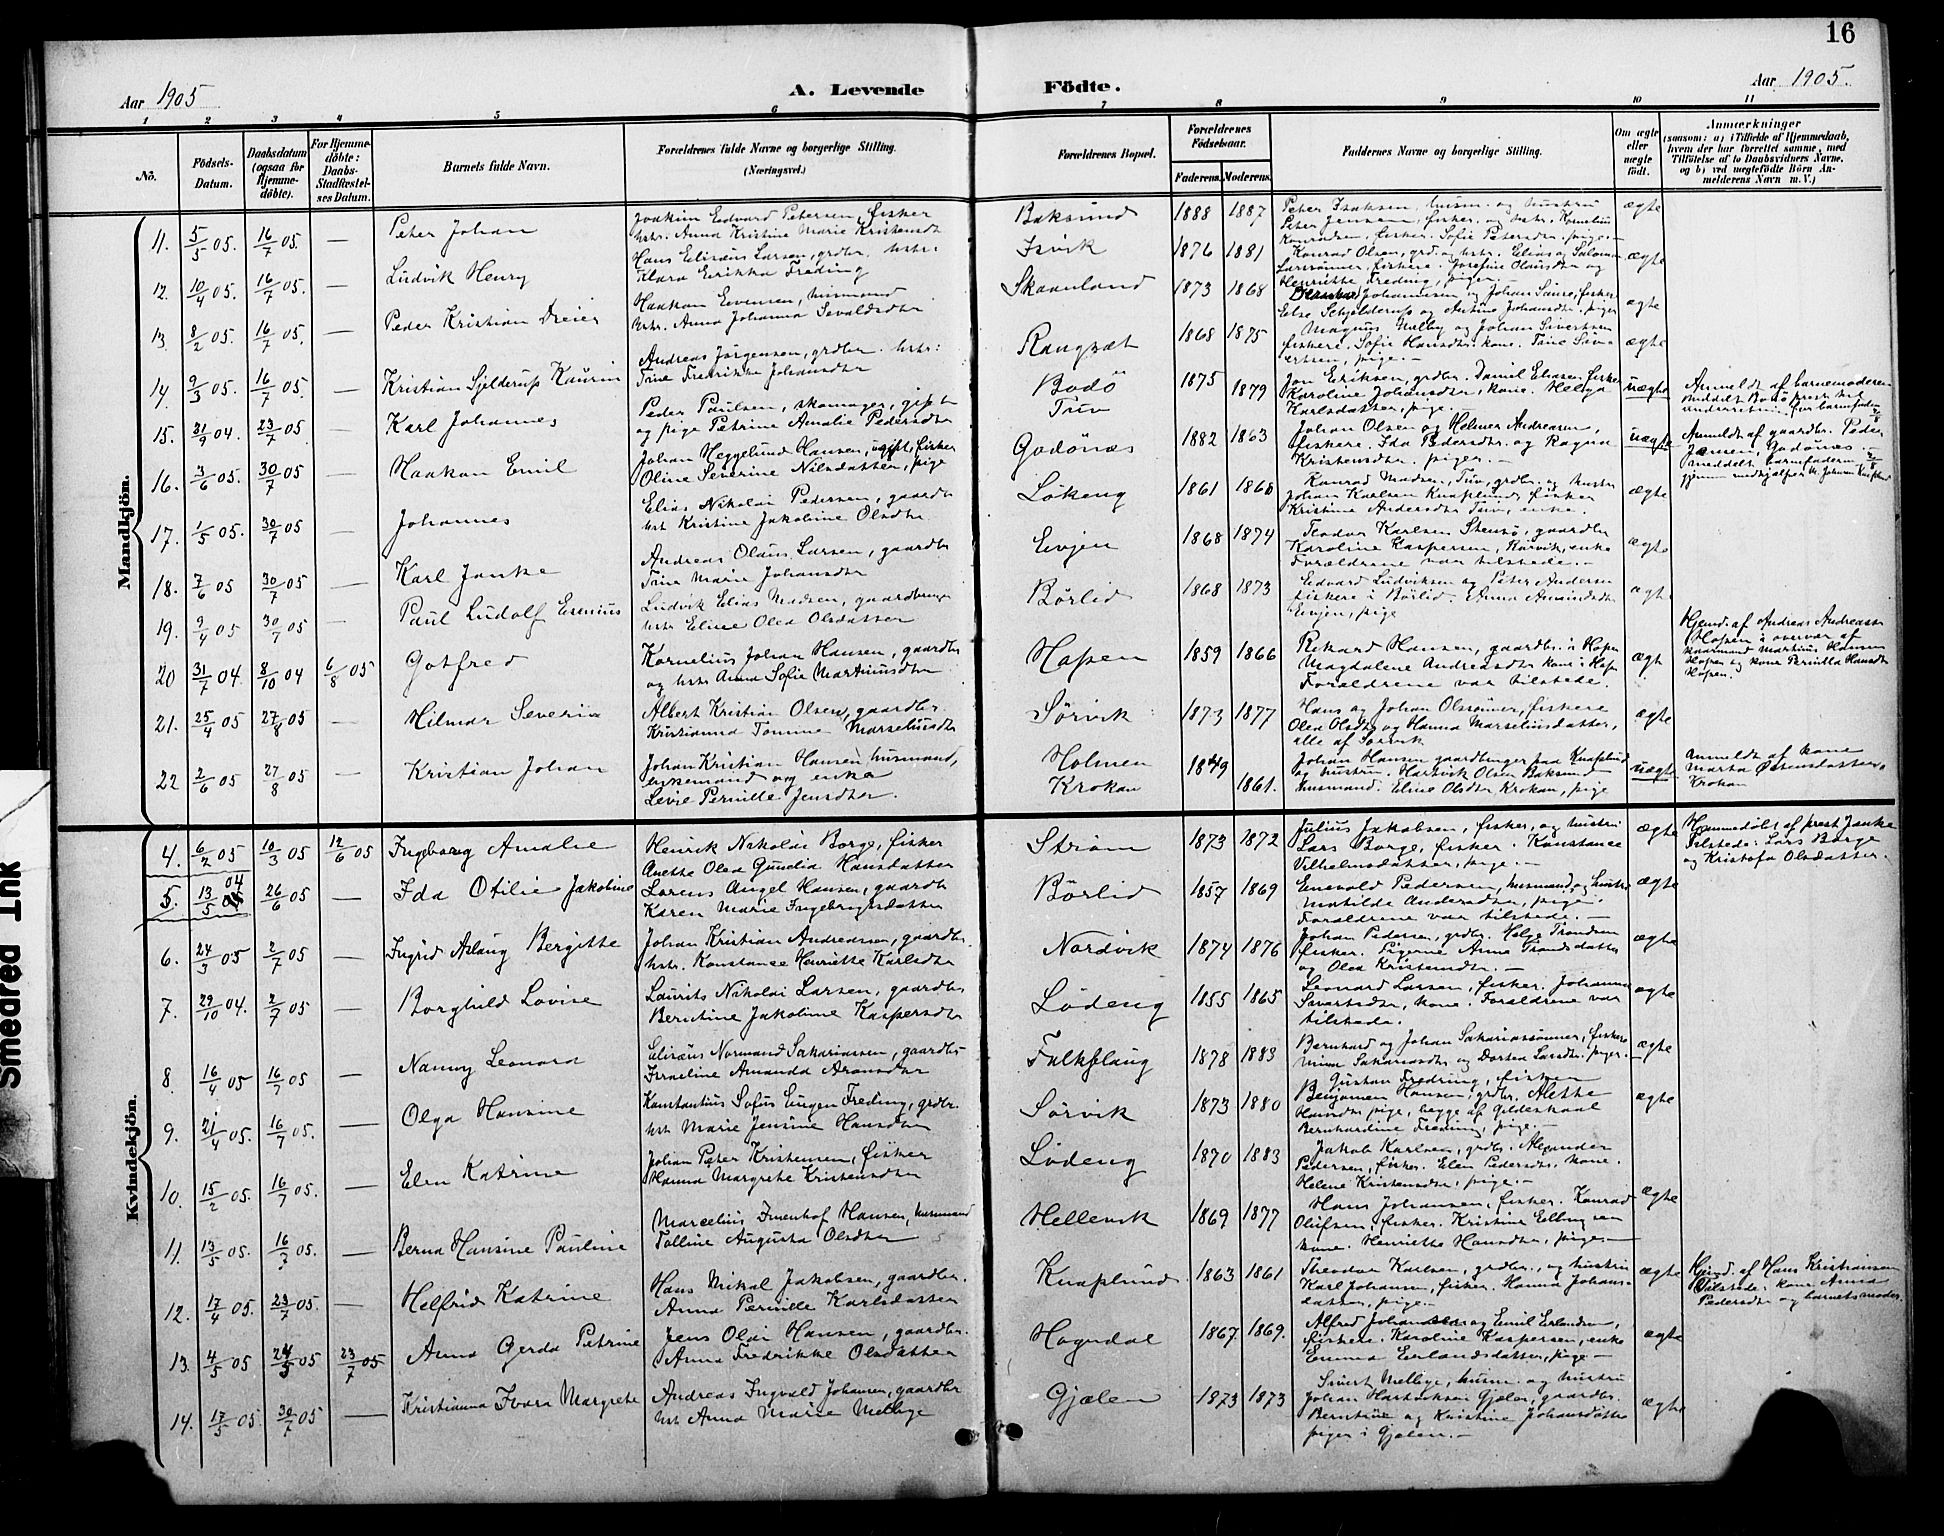 16
Aar 1905
A. Levende Födte.
Aar 1905.
1 2 3 4 5 6 7 8 9 10 11
No.
Födsels-Datum.
Daabsdatum (ogsaa for Hjemme-döbte).
For Hjemme-döbte: Daabs-Stadfæstel-ses Datum.
Barnets fulde Navn.
Forældrenes fulde Navne og borgerlige Stilling.
(Næringsvei.)
Forældrenes Bopæl.
Forældrenes Födselsaar.
Faderens. Moderens.
Faddernes Navne og borgerlige Stilling.
Om ægte eller uægte födt.
Anmærkninger
(saasom: a) i Tilfælde af Hjemmedaab, hvem der har forrettet samme, med Tilföielse af to Daabsvidners Navne, og b) ved uægtefödte Börn Anmelderens Navn m. V.)
Mandkjön.
11. 5/5 05. 16/7 05. — Peter Johan
Joakim Edvard Petersen, fisker
hstr. Anna Kristine Marie Kristensdt
Baksund 1888 1887
Peter Isaksen, husm. og hustru
Peter Jensen, fisker og hstr. Kornelius
Konradsen, fisker. Sofie Petersdtr. pige. —
ægte
12. 10/4 05. 16/7 05. — Ludvik Henry
Hans Elisæus Larsen, grdbr. hstr:
Klara Erikka Freding
Isvik 1876 1881
Konrad Olsen, grd. og hstr. Elias og Salomon
Larssönner, fiskere. Josefine Olausdtr og
Henriette Freding, piger.
ægte
13. 8/2 05. 16/7 05. — Peder Kristian Dreier
Haakon Evensen, husmand
hstr. Anna Johanna Sevaldsdtr
Skaanland 1873 1868
Johannesen og Johan fisker
Else Schjelderup og Antine Johansdtr. piger
ægte
14. 9/3 05. 16/7 05. — Kristian Sjelderup Kaurin
Andreas Jörgensen, grdbr. hstr:
Trine Fredrikke Johansdtr
Rangsæt 1868 1875
Magnus Melby og Johan Sivertsen
fiskere. Sofie Hansdtr. kone. Trine Siv-
ertsen, pige. —
ægte
15. 31/9 04. 23/7 05. — Karl Johannes
Peder Paulsen, skomager, gift
og pige Petrine Amalie Pedersdtr
Bodö
Tuv 1875 1879
Jon Eriksen, grdbr. Daniel Eliasen, fisker
Karoline Johansdtr, kone. Helga
Karlsdatter, pige.
uægte
Anmeldt af barnemoderen
meddelt Bodö prest til
underretn. for barnefader
16. 3/6 05. 30/7 05. — Haakon Emil
Johan Heggelund Hansen, ugift, fisker
Oline Severine Nilsdatter, pige
Godönes 1882 1863
Johan Olsen og Helmer Andreasen,
fiskere. Ida Pedersdtr. og Ragna
Kristensdtr. piger. —
uægte
Anmeldt af gaardbr. Peder
Jensen, Godönes.
meddelt barnefaderen 2/8
gjennem medhjælper M. Johnsen Knaplund
17. 1/5 05. 30/7 05 — Johannes
Elias Nikolai Pedersen, gaardb
hst Kristine Jakobine Olsdtr
Lökeng 1861 1868
Konrad Madsen, Tuv, grdbr. og hustr
Johan Karlsen Knaplund, fisker
Kristine Andersdtr Tuv, enke.
ægte
18. 7/6 05 30/7 05 — Karl Janke
Andreas Olaus Larsen, gaardbr
Trine Marie Johansdtr
Evjen 1868 1874
Teodor Karlsen Stensö, gaardbr
Karoline Kaspersen, Rörvik, enke
Forældrene var tilstede. —
ægte
19. 9/4 05 30/7 05 — Paul Ludolf Esenius
Ludvik Elias Madsen, gaardbruger
hstr Eline Olea Olsdatter
Börlid 1868 1873
Edvard Ludviksen og Peter Andersen
fiskere i Börlid. Anna Amundsdtr
Evjen, pige
ægte
20 31/7 04. 8/10 04 6/8 05 Gotfred
Kornelius Johan Hansen, gaardbr
og hstr Anna Sofie Martinusdtr
Hopen 1859 1866
Rikard Hansen, gaardbr. i Hopen
Magdalene Andreasdtr kone i Hopen
Forældrene var tilstede.
ægte
Hjemd. af Andreas Andreassen
Hopen i overvær af
kaarmand Martinus Hansen
Hopen og kone Pernilla Hansdtr
Hopen.
21. 25/4 05 27/8 05 — Hilmar Severin
Albert Kristian Olsen, gaardbr.
Kristianna Tomine Marseliusdtr
Sörvik 1873 1877
Hans og Johan Olssönner, fiskere
Olea Olsdtr og Hanna Marseliusdatter,
alle af Sörvik
ægte
22 2/6 05 27/8 05 — Kristian Johan
Johan Kristian Hansen husmand,
enkemand og enke
Levie Pernille Jensdtr.
Holmen
Krokan 1849 1861.
Johan Hansen gaardbruger paa Knaplund
og hustru. Hartvik Olsen Baksund
husmand. Eline Olsdtr, Krokan, pige
uægte
Anmeldt af kone
Marta Östensdatter,
Krokan
Kvindekjön.
4. 6/2 05 10/3 05 12/6 05 Ingeborg Amalie
Henrik Nikolai Borge, fisker
Anette Olea Gunilia Hansdatter
Ström 1873 1872
Julius Jakobsen, fisker, og hustru
Lars Borge, fisker. Konstance
Vilhelmsdatter, pige. —
ægte
Hjemmedöbt af prest Janke
Tilstede: Lars Borge
og Kristofa Olsdatter.
5. 13/5 04 26/6 05 — Ida Otilie Jakobine
Lorens Angel Hansen, gaardbr
Karen Marie Ingebrigtsdatter
Börlid 1857 1869
Enevold Pedersen, husmand og hustru
Matilde Andersdtr, pige.
Forældrene var tilstede. —
ægte
6. 24/3 05 2/7 05 — Ingrid Aslaug Bergitte
Johan Kristian Andreassen, gaardbr.
hstr. Konstance Henriette Karlsdtr
Nordvik 1874 1876
Johan Pedersen, grdbr. Helge Trondsen
fisker. Pigerne Anna Trondsdatter
og Olea Kristensdtr. —
ægte
7. 29/10 04. 2/7 05 — Borghild Lovise
Laurits Nikolai Larsen, gaardbr
Berntine Jakobine Kaspersdtr
Lödeng 1855 1865
Leonard Larsen, fisker. Johanna
Sivertsdtr, kone. Forældrene var
tilstede.
ægte
8. 16/4 05 16/7 05 — Nanny Leonora
Elisæus Normand Sakariassen, gaardbr
Iraeline Amanda Aronsdtr
Falkflaug 1878 1883
Bernhard og Johan Sakariassönner, fiskere
Mina Sakariasdtr og Dortea Larsdtr. piger.
ægte
9. 21/4 05. 16/7 05. — Olga Hansine
Konstantius Sofus Eugen Freding, grdbr.
hst Marie Jensine Hansdtr
Sörvik 1873 1880
Gustan Fredring, fisker
Benjamen Hansen, grdbr. Alethe
Hansdtr pige, begge af Gildeskaal
Bernhardine Freding, pige. —
ægte
10. 15/2 05. 16/7 05. — Elen Katrine
Johan Peter Kristensen, fisker
Hanna Margrete Kristensdtr
Lödeng 1870 1883
Jakob Karlsen, grdbr. Alexander
Pedersen, fisker. Elen Pedersdtr. kone.
Helene Kristensdtr, pige. —
ægte
11. 13/5 05. 16/7 05. — Berna Hansine Pauline
Marcelius Imenhof Hansen, husmand
Talline Augusta Olsdtr
Hellevik 1869 1877
Hans Johansen, fisker. Konrad
Olufsen, fisker. Kristine
kone. Henriette Hansdtr, pige. —
12. 17/4 05. 23/7 05. — Helfrid Katrine
Hans Mikal Jakobsen, gaardbr.
Anna Pernille Karlsdatter
Knaplund 1863 1861
Theodor Karlsen, grdbr., og hustru
Karl Johansen, fisker. Hanna Johans-
datter, pige. —
ægte
Hjemd. af Hans Kristiansen
Tilstede: kone Anna
Pedersdtr og barnets moder.
13. 4/5 05 24/5 05 23/7 05 Anna Gerda Petrine
Jens Olai Hansen, gaardbr.
Anna Fredrikke Olsdatter
Hogndal 1867. 1869.
Alfred Johansen og Emil Erlandsen,
fiskere. Karoline Kaspersen, enke
Emma Erlandsdatter, pige —
ægte
14. 17/5 05. 30/7 05 — Kristianna Ivara Margrete
Andreas Ingvald Johansen, gaardbr
hst Anna Marie Mellige
Gjælen 1873 1873
Sivert Mellige, husm. og hustru
Johan Hartviksen Gjælen, gaardbr.
Berntine og Kristine Johansdötre
piger i Gjælen. —
ægte
Smeared Ink